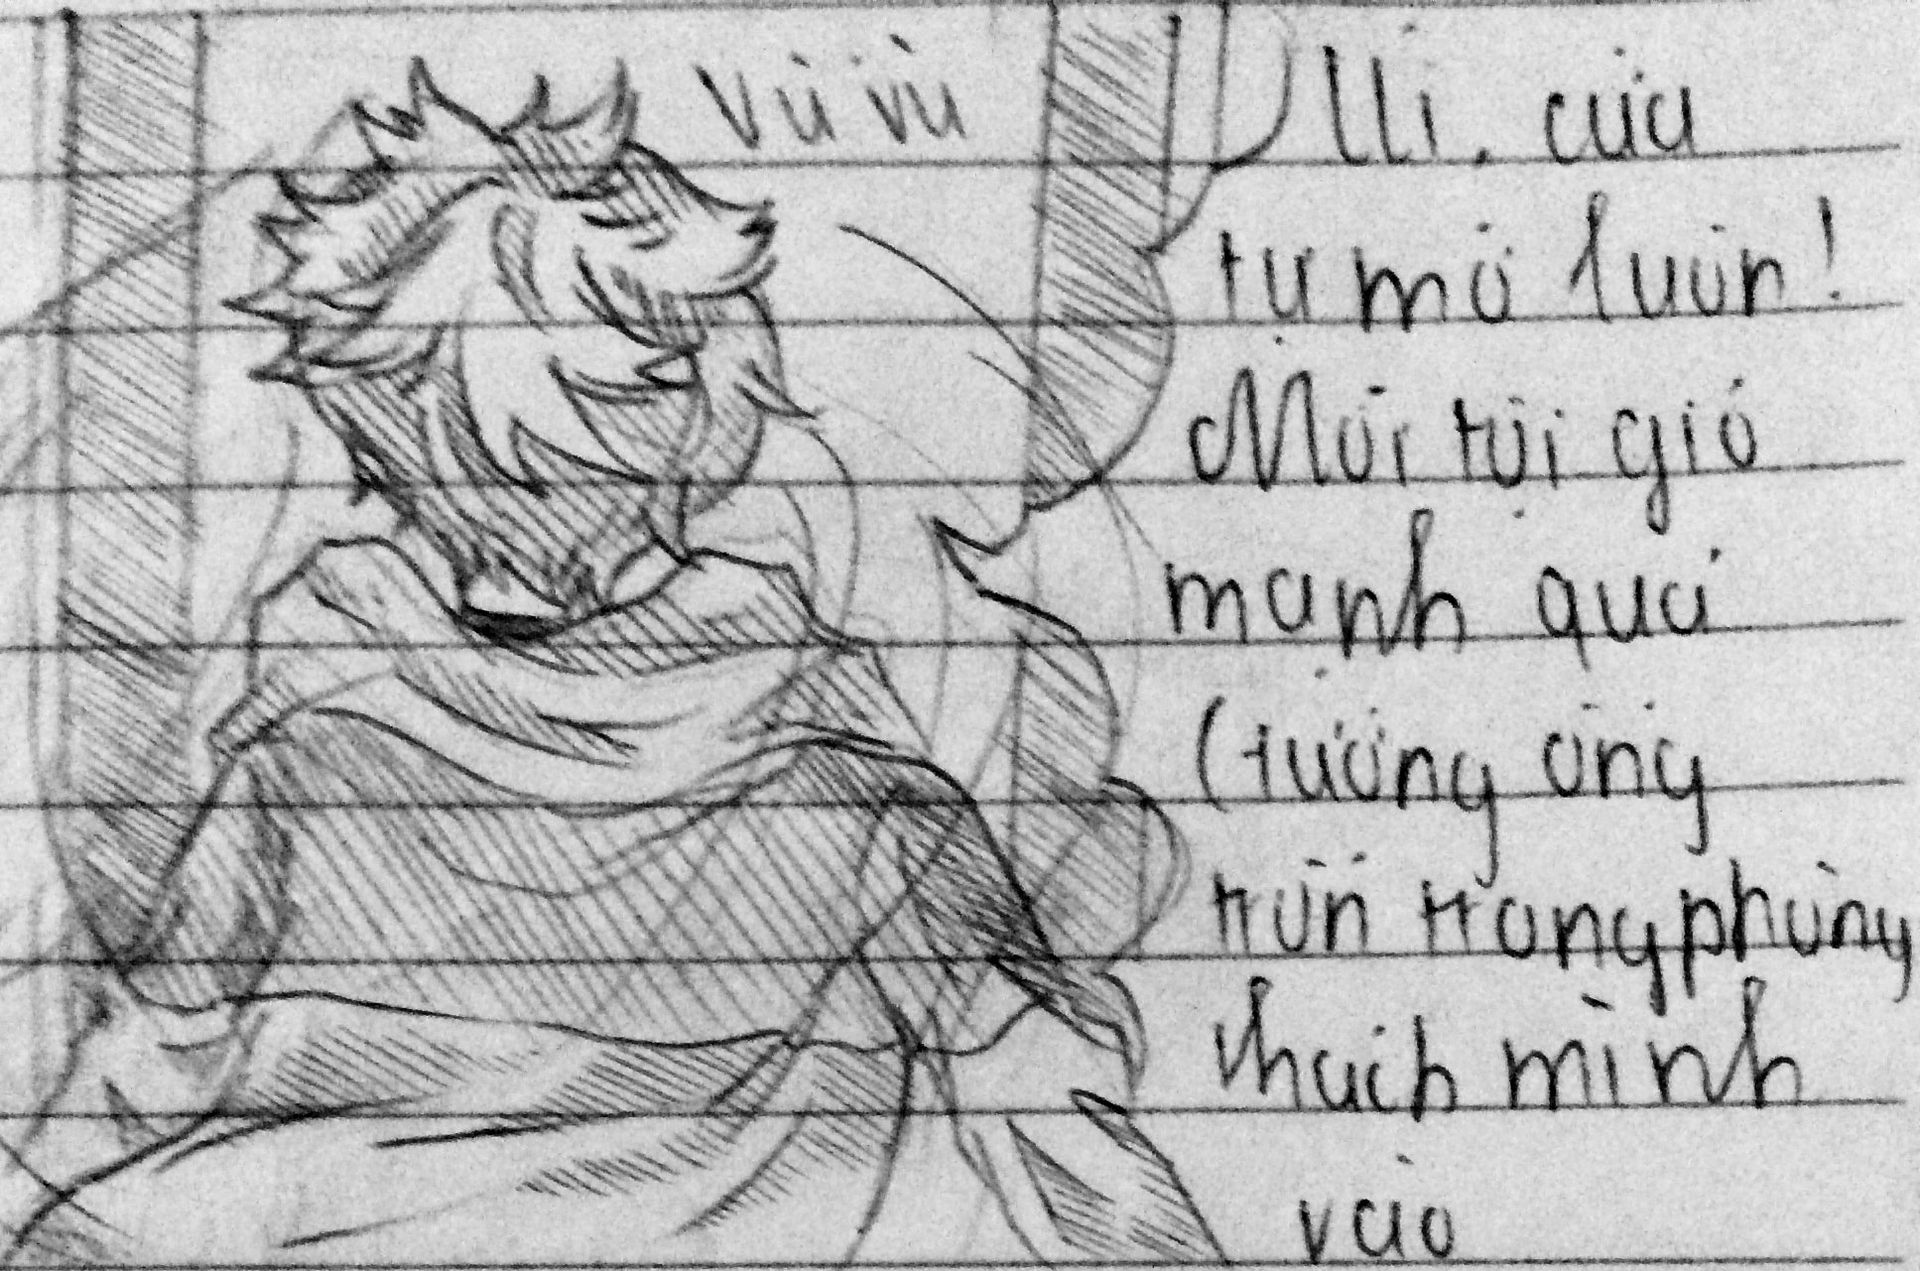 vù vù
Ui. cửa
tự mở luôn!
Mới tội gió
mạnh quá
(tưởng ông
trốn trong phòng
khách mình
vào